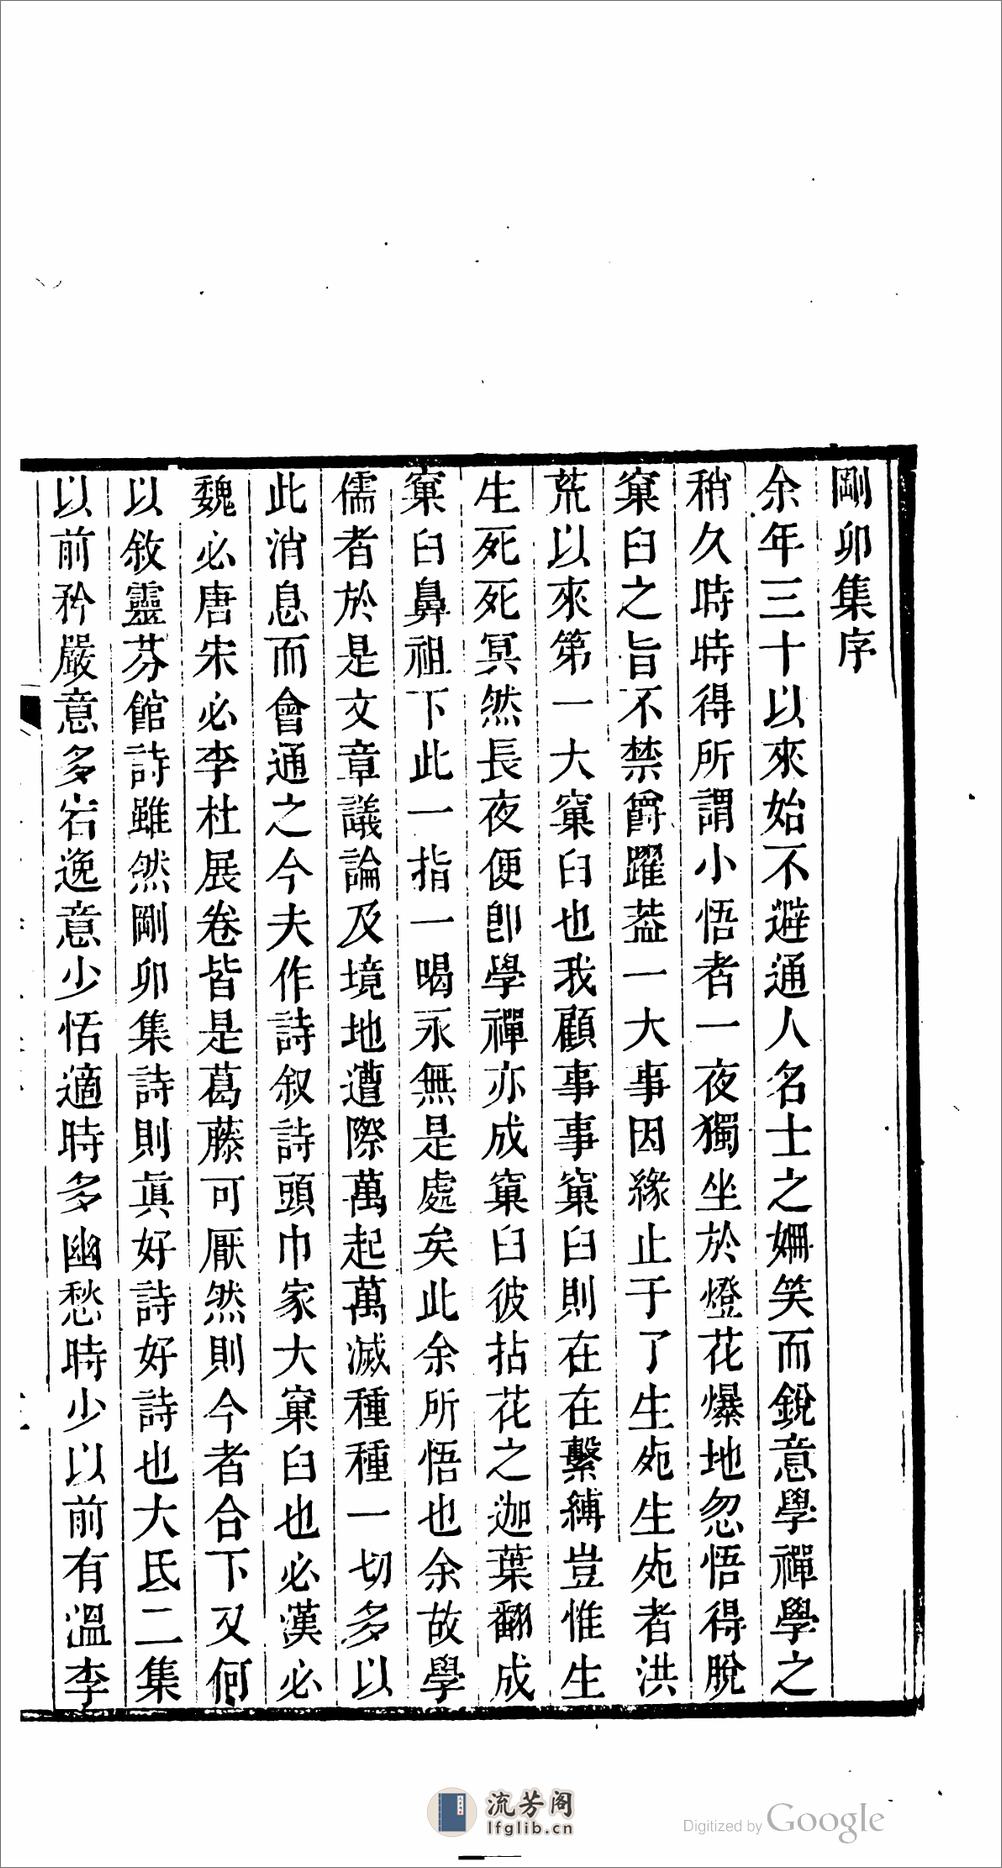 剛卯集序
余年三十以來始不避通人名士之姍笑而銳意學禪學之
稍久時時得所謂小悟者一夜獨坐於燈花爆地忽悟得脫
窠臼之旨不禁爵躍葢一大事因緣止于了生死生死者洪
荒以來第一大窠臼也我顧事事窠臼則在在繫縛豈惟生
生死死冥然長夜便卽學禪亦成窠臼彼拈花之迦葉翻成
窠臼鼻祖下此一指一喝永無是處矣此余所悟也余故學
儒者於是文章議論及境地遭際萬起萬滅種種一切多以
此消息而會通之今夫作詩叙詩頭巾家大窠臼也必漢必
魏必唐宋必李杜展卷皆是葛藤可厭然則今者合下又何
以敘靈芬館詩雖然剛卯集詩則眞好詩好詩也大氐二集
以前矜嚴意多宕逸意少恬適時多幽愁時少以前有溫李
流芳阁
lfglib.cn
Digitized by Google